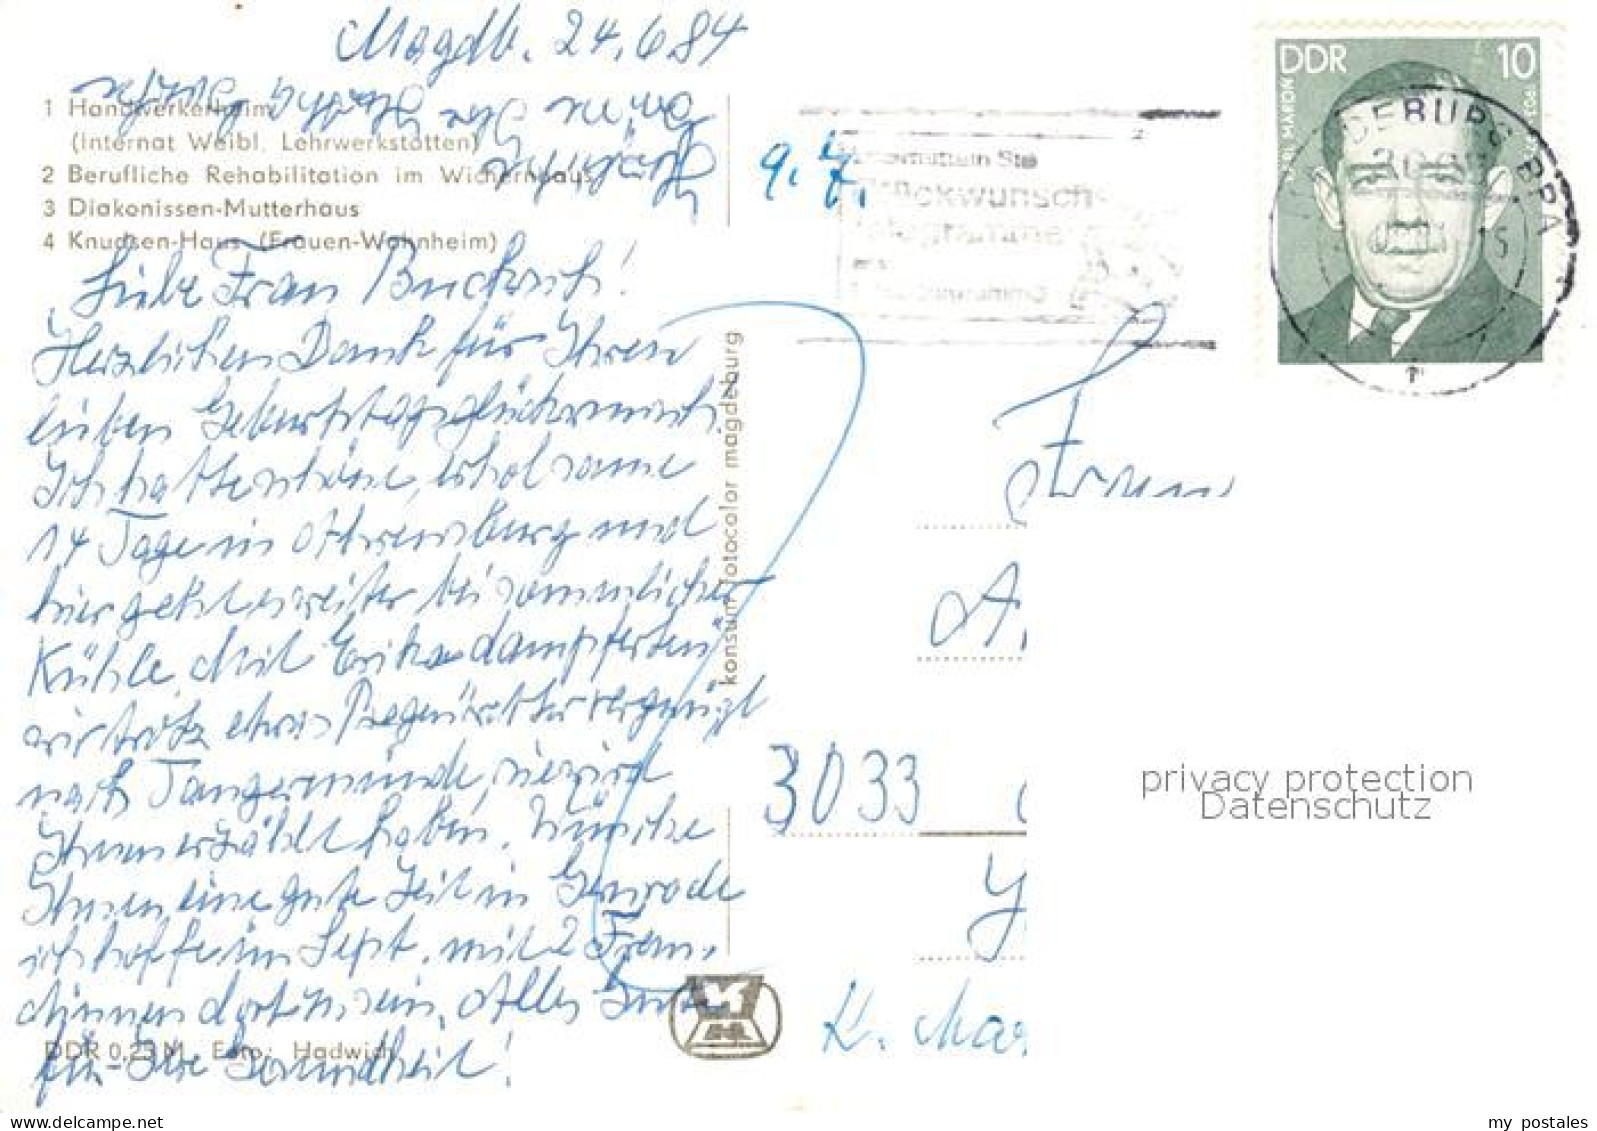 Magdb. 24.6.84
1 Handwerkerheim
(Internat Weibl. Lehrwerkstätten)
2 Berufliche Rehabilitation im Wichernhaus
3 Diakonissen-Mutterhaus
4 Knudsen-Haus (Frauen-Wohnheim)
9.7.
DDR 10
KARL MARON
Glückwunsch-
telegramme
Liebe Frau
Herzlichen Dank für Ihren
lieben Geburtstagsglückwunsch.
Ich hatte schöne, erholsame
14 Tage in und
hier geht es weiter bei sommerlicher
Kühle. Mit Erika dampferten
wir trotz etwas Regenwetter vergnügt
nach Tangermünde, sie wird
Ihnen erzählt haben. Wünsche
Ihnen eine gute Zeit in Gernrode
ich hoffe im Sept. mit 2 Freun-
dinnen dort zu sein. Alles Gute
für Ihre Gesundheit!
DDR 0,25 M Foto: Hadwich
konsum fotocolor magdeburg
Frau
A.
3033
K. Mar
privacy protection
Datenschutz
my postales